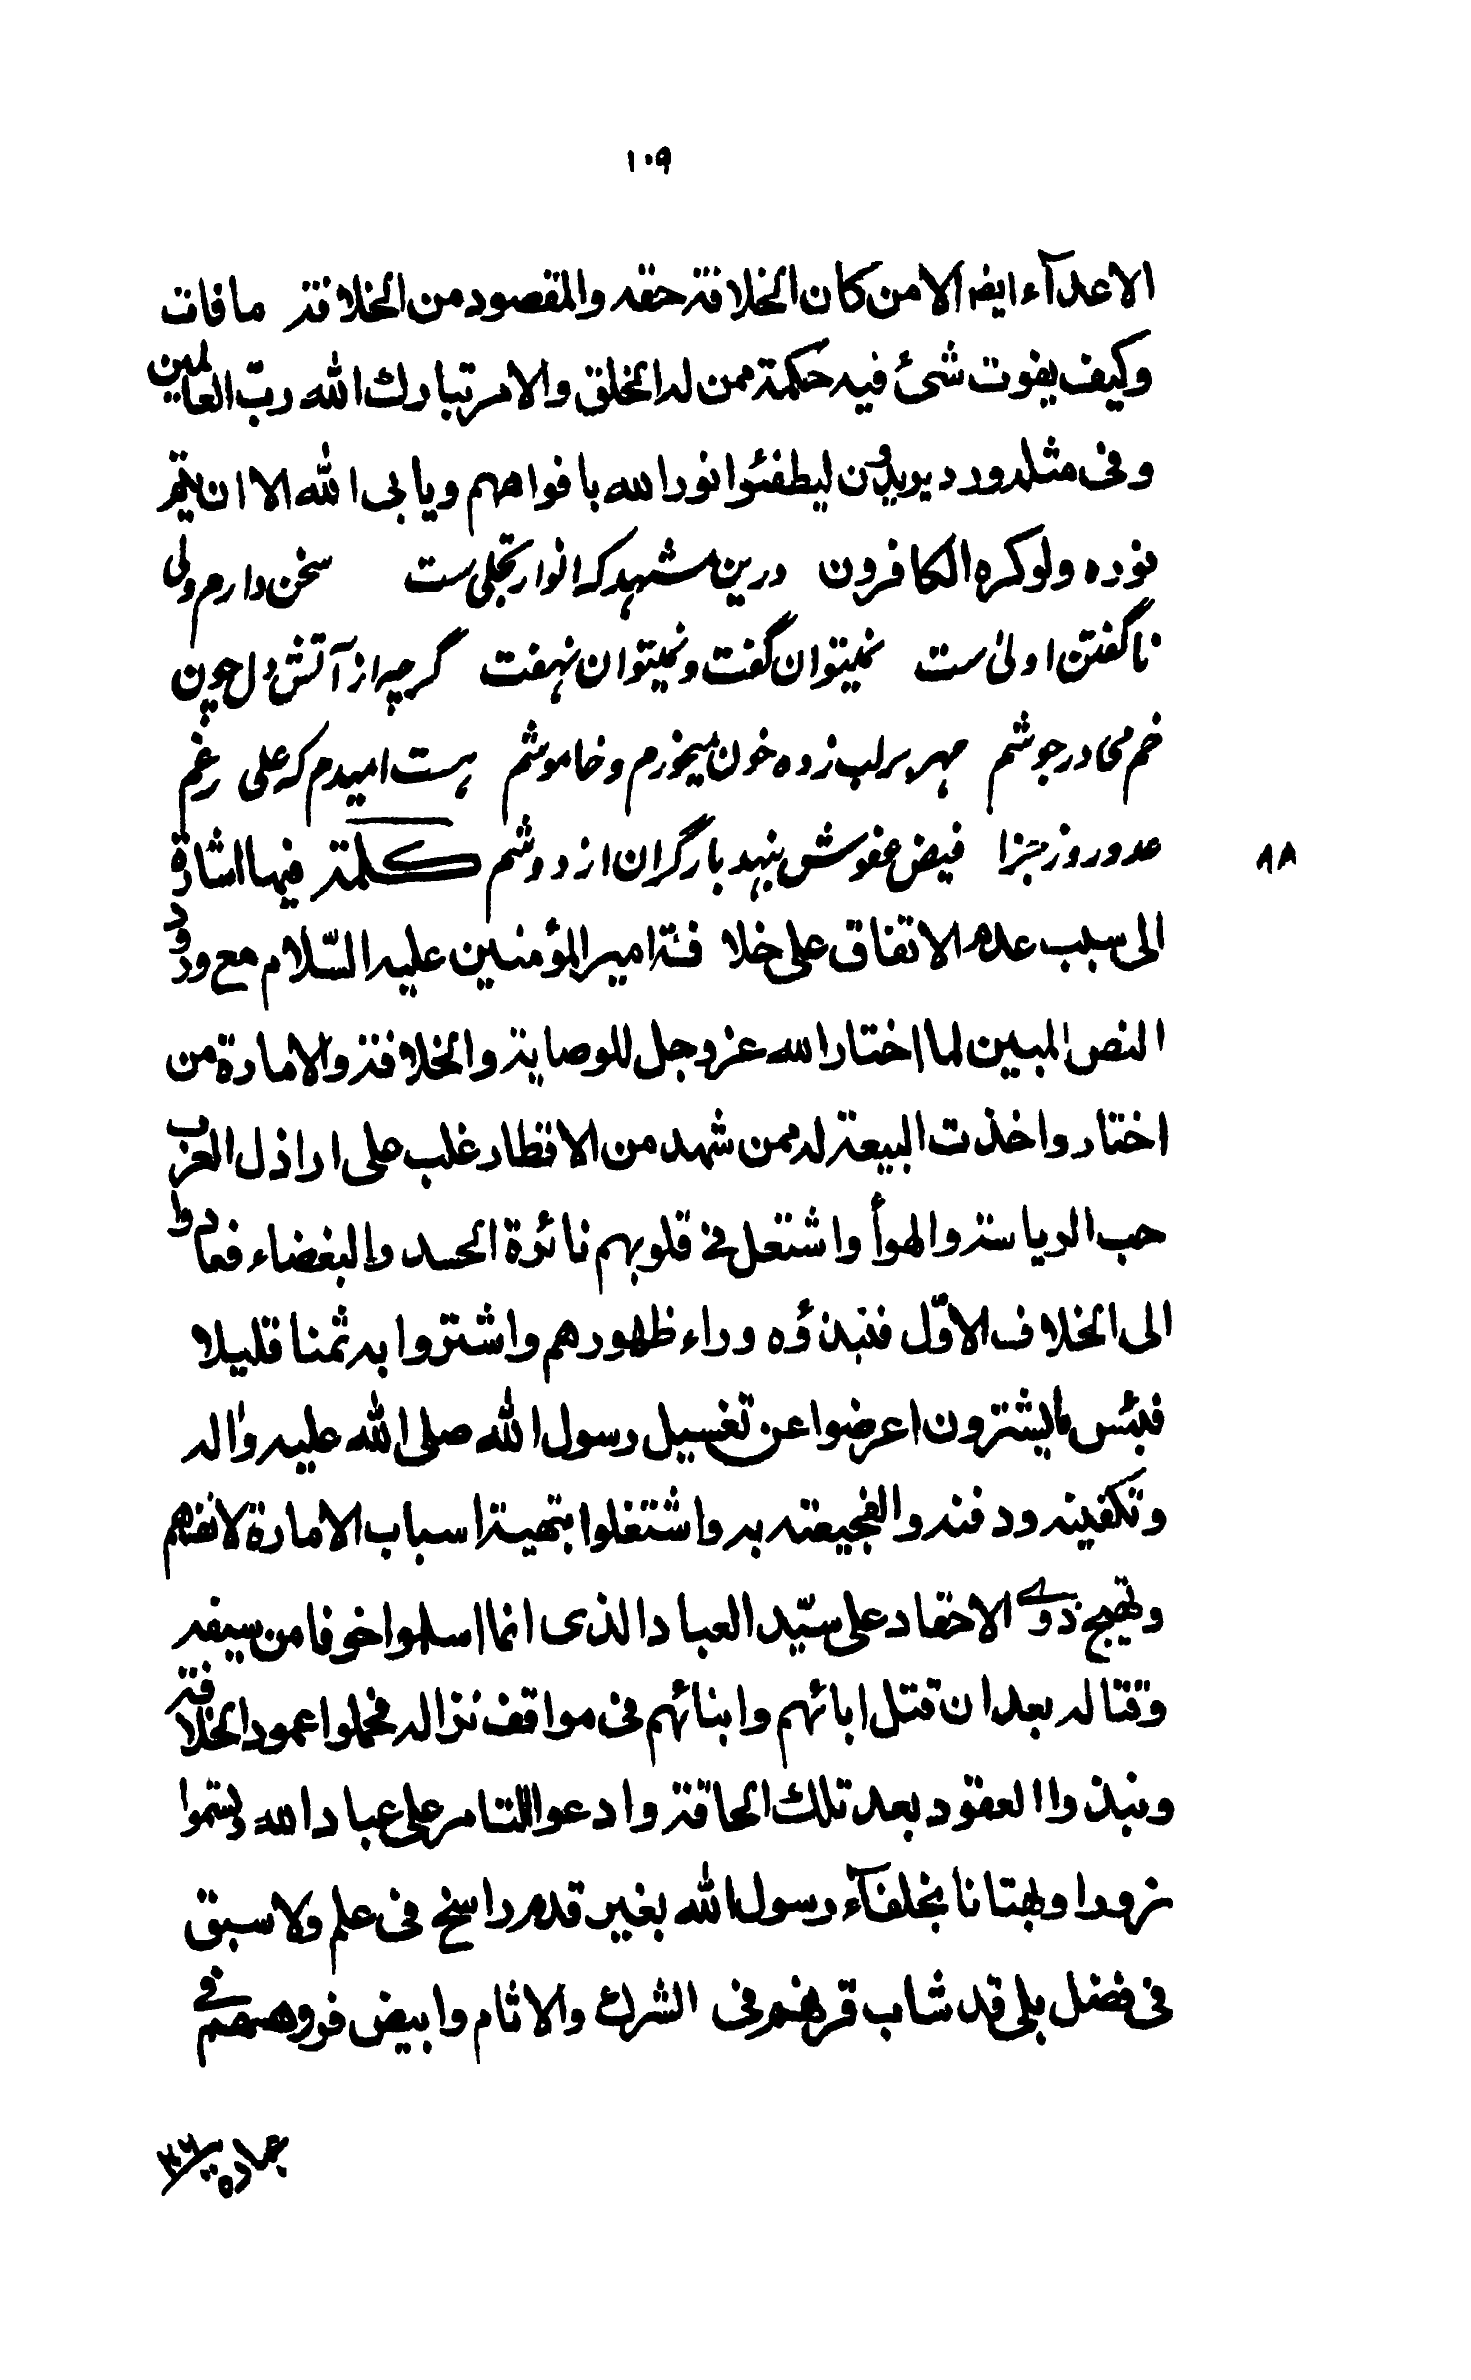 ١٠٩
الاعدآء ايضا الا من كان الخلافة حقه والمقصود من الخلافة ما فات
وكيف يفوت شئ فيه حكمة ممن له الخلق والامر تبارك الله ربّ العالمين
وفى مثله ورد يريدون ليطفئوا نور الله بافواههم ويابى الله الا ان يتم
نوره ولو كره الكافرون درين مشهد كه انوار تجلى ست سخن دارم ولى
ناگفتن اولىٰ ست نميتوان گفت ونميتوان نهفت گرچه از آتش دل چون
خم مى در جوشم مهر بر لب زده خون ميخورم و خاموشم هست اميدم كه على رغم
عدو روز جزا فيض عفوش بنهد بار گران از دوشم كلمة فيها اشارة
٨٨
الى سبب عدم الاتفاق على خلافة امير المؤمنين عليه السّلام مع ورود
النص المبين لما اختار الله عز وجل للوصاية والخلافة والامارة من
اختار واخذت البيعة له ممن شهد من الاقطار غلب على اراذل العرب
حب الرياسة والهوأ واشتعل فى قلوبهم نائرة الحسد والبغضاء فعادوا
الى الخلاف الاوّل فنبذؤه وراء ظهورهم واشتروا به ثمنا قليلا
فبئس ما يشترون اعرضوا عن تغسيل رسول الله صلى الله عليه واله
وتكفينه ودفنه والفجيعة به واشتغلوا بتهية اسباب الامارة لانفسهم
وتهيج ذوے الاحقاد على سيّد العباد الذى انما اسلموا خوفا من سيفه
وقتاله بعد ان قتل ابائهم وابنائهم فى مواقف نزاله فحملوا عمود الخلافة
ونبذوا العقود بعد تلك الحاقة وادعوا التامر على عباد الله وتسموا
زورا وبهتانا بخلفآء رسول الله بغير قدم راسخ فى علم ولا سبق
فى فضل بلى قد شاب قرنهم فى الشرك والاثام وابيض فروهم فى